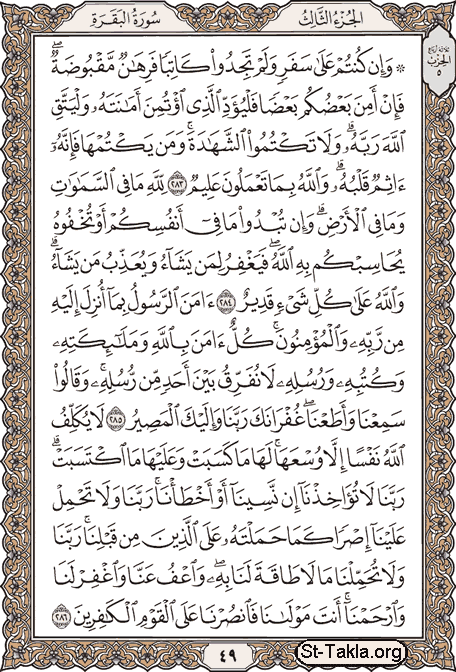 الجُزْءُ الثَّالِثُ
سُورَةُ البَقَرَةِ
ثلاثة أرباع
الحزب
٥
۞ وَإِن كُنتُمْ عَلَىٰ سَفَرٍ وَلَمْ تَجِدُوا۟ كَاتِبًا فَرِهَٰنٌ مَّقْبُوضَةٌ ۖ
فَإِنْ أَمِنَ بَعْضُكُم بَعْضًا فَلْيُؤَدِّ ٱلَّذِى ٱؤْتُمِنَ أَمَٰنَتَهُۥ وَلْيَتَّقِ
ٱللَّهَ رَبَّهُۥ ۗ وَلَا تَكْتُمُوا۟ ٱلشَّهَٰدَةَ ۚ وَمَن يَكْتُمْهَا فَإِنَّهُۥٓ
ءَاثِمٌ قَلْبُهُۥ ۗ وَٱللَّهُ بِمَا تَعْمَلُونَ عَلِيمٌ ٢٨٣ لِّلَّهِ مَا فِى ٱلسَّمَٰوَٰتِ
وَمَا فِى ٱلْأَرْضِ ۗ وَإِن تُبْدُوا۟ مَا فِىٓ أَنفُسِكُمْ أَوْ تُخْفُوهُ
يُحَاسِبْكُم بِهِ ٱللَّهُ ۖ فَيَغْفِرُ لِمَن يَشَآءُ وَيُعَذِّبُ مَن يَشَآءُ ۗ
وَٱللَّهُ عَلَىٰ كُلِّ شَىْءٍ قَدِيرٌ ٢٨٤ ءَامَنَ ٱلرَّسُولُ بِمَآ أُنزِلَ إِلَيْهِ
مِن رَّبِّهِۦ وَٱلْمُؤْمِنُونَ ۚ كُلٌّ ءَامَنَ بِٱللَّهِ وَمَلَٰٓئِكَتِهِۦ
وَكُتُبِهِۦ وَرُسُلِهِۦ لَا نُفَرِّقُ بَيْنَ أَحَدٍ مِّن رُّسُلِهِۦ ۚ وَقَالُوا۟
سَمِعْنَا وَأَطَعْنَا ۖ غُفْرَانَكَ رَبَّنَا وَإِلَيْكَ ٱلْمَصِيرُ ٢٨٥ لَا يُكَلِّفُ
ٱللَّهُ نَفْسًا إِلَّا وُسْعَهَا ۚ لَهَا مَا كَسَبَتْ وَعَلَيْهَا مَا ٱكْتَسَبَتْ ۗ
رَبَّنَا لَا تُؤَاخِذْنَآ إِن نَّسِينَآ أَوْ أَخْطَأْنَا ۚ رَبَّنَا وَلَا تَحْمِلْ
عَلَيْنَآ إِصْرًا كَمَا حَمَلْتَهُۥ عَلَى ٱلَّذِينَ مِن قَبْلِنَا ۚ رَبَّنَا
وَلَا تُحَمِّلْنَا مَا لَا طَاقَةَ لَنَا بِهِۦ ۖ وَٱعْفُ عَنَّا وَٱغْفِرْ لَنَا
وَٱرْحَمْنَآ ۚ أَنتَ مَوْلَىٰنَا فَٱنصُرْنَا عَلَى ٱلْقَوْمِ ٱلْكَٰفِرِينَ ٢٨٦
٤٩
St-Takla.org